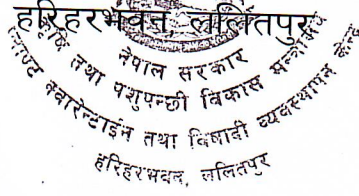 हरिहरभवन, ललितपुर
नेपाल सरकार
कृषि तथा पशुपन्छी विकास मन्त्रालय
प्लाण्ट क्वारेन्टाईन तथा विषादी व्यवस्थापन केन्द्र
हरिहरभवन, ललितपुर